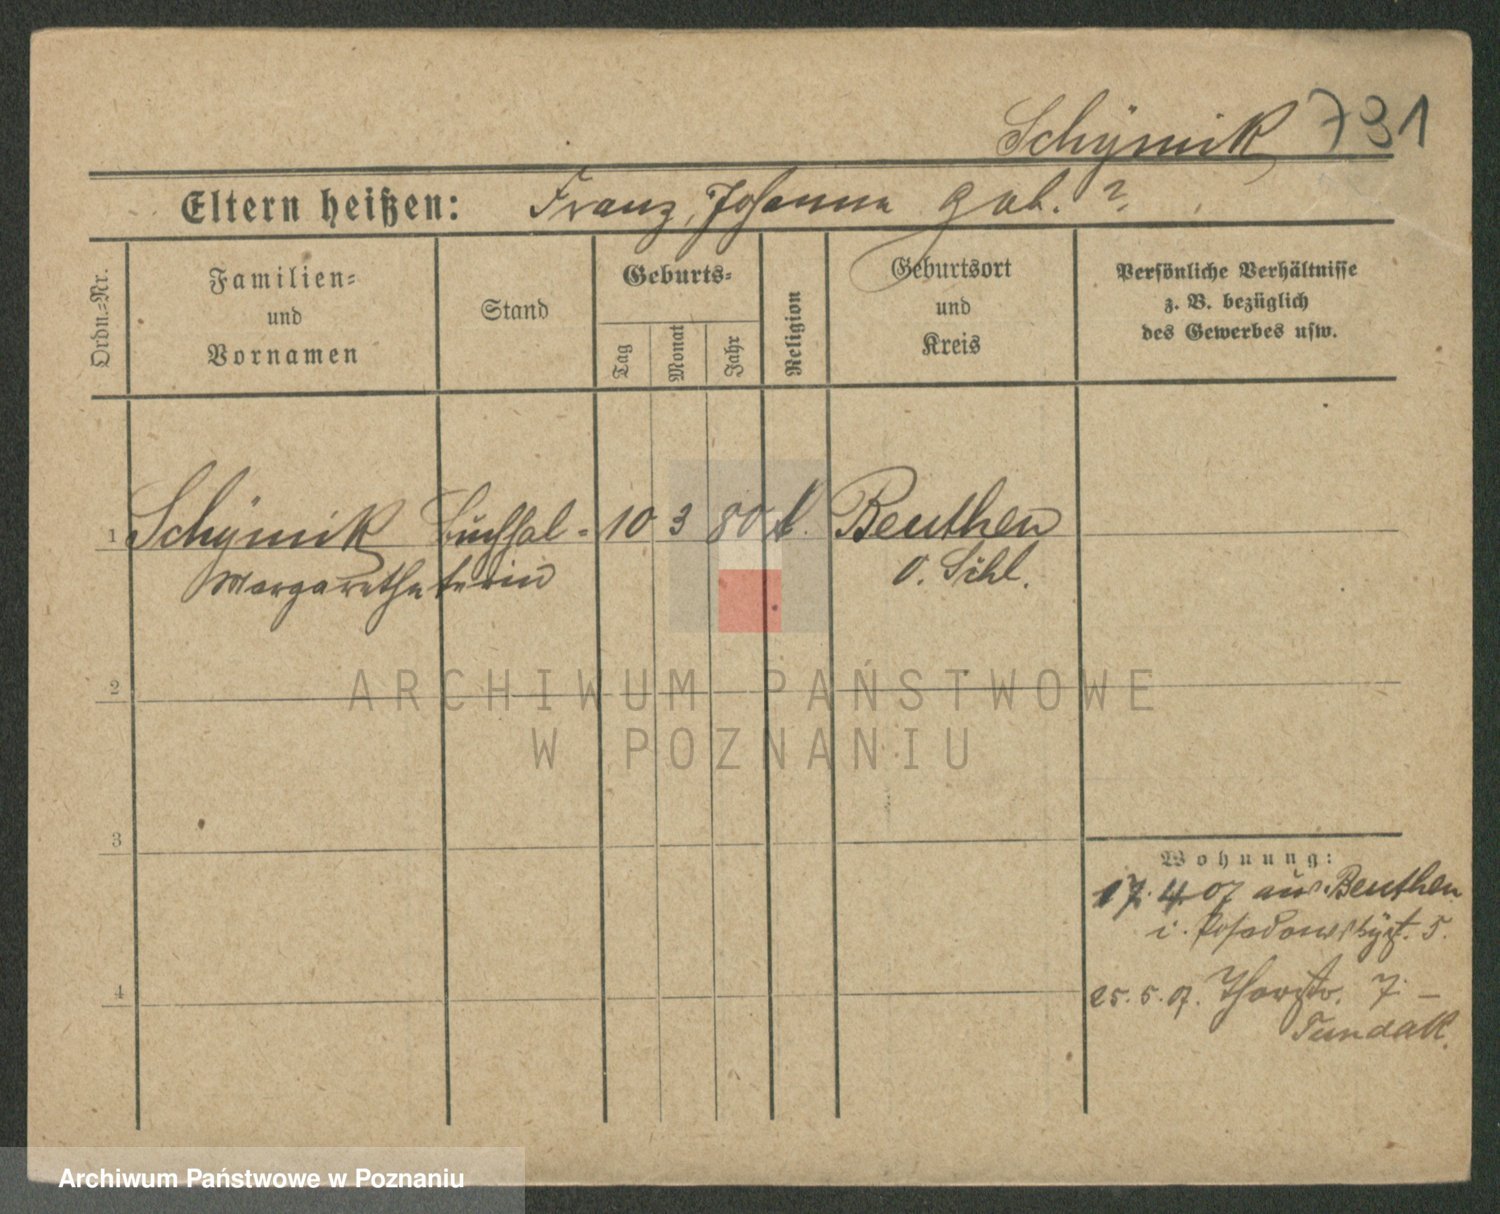 Schÿmik 731
Eltern heißen: Franz, Johanna geb. ?
Ordn.-Nr.
Familien-
und
Vornamen
Stand
Geburts-
Tag
Monat
Jahr
Religion
Geburtsort
und
Kreis
Persönliche Verhältnisse
z. B. bezüglich
des Gewerbes usw.
1 Schÿmik Buchhal- 10 3 80 k. Beuthen
Margarethe terin O. Schl.
2
ARCHIWUM PAŃSTWOWE
W POZNANIU
3
Wohnung:
17. 4. 07 aus Beuthen
i. Posadowskÿst. 5.
4
25. 5. 07. 7. –
Archiwum Państwowe w Poznaniu